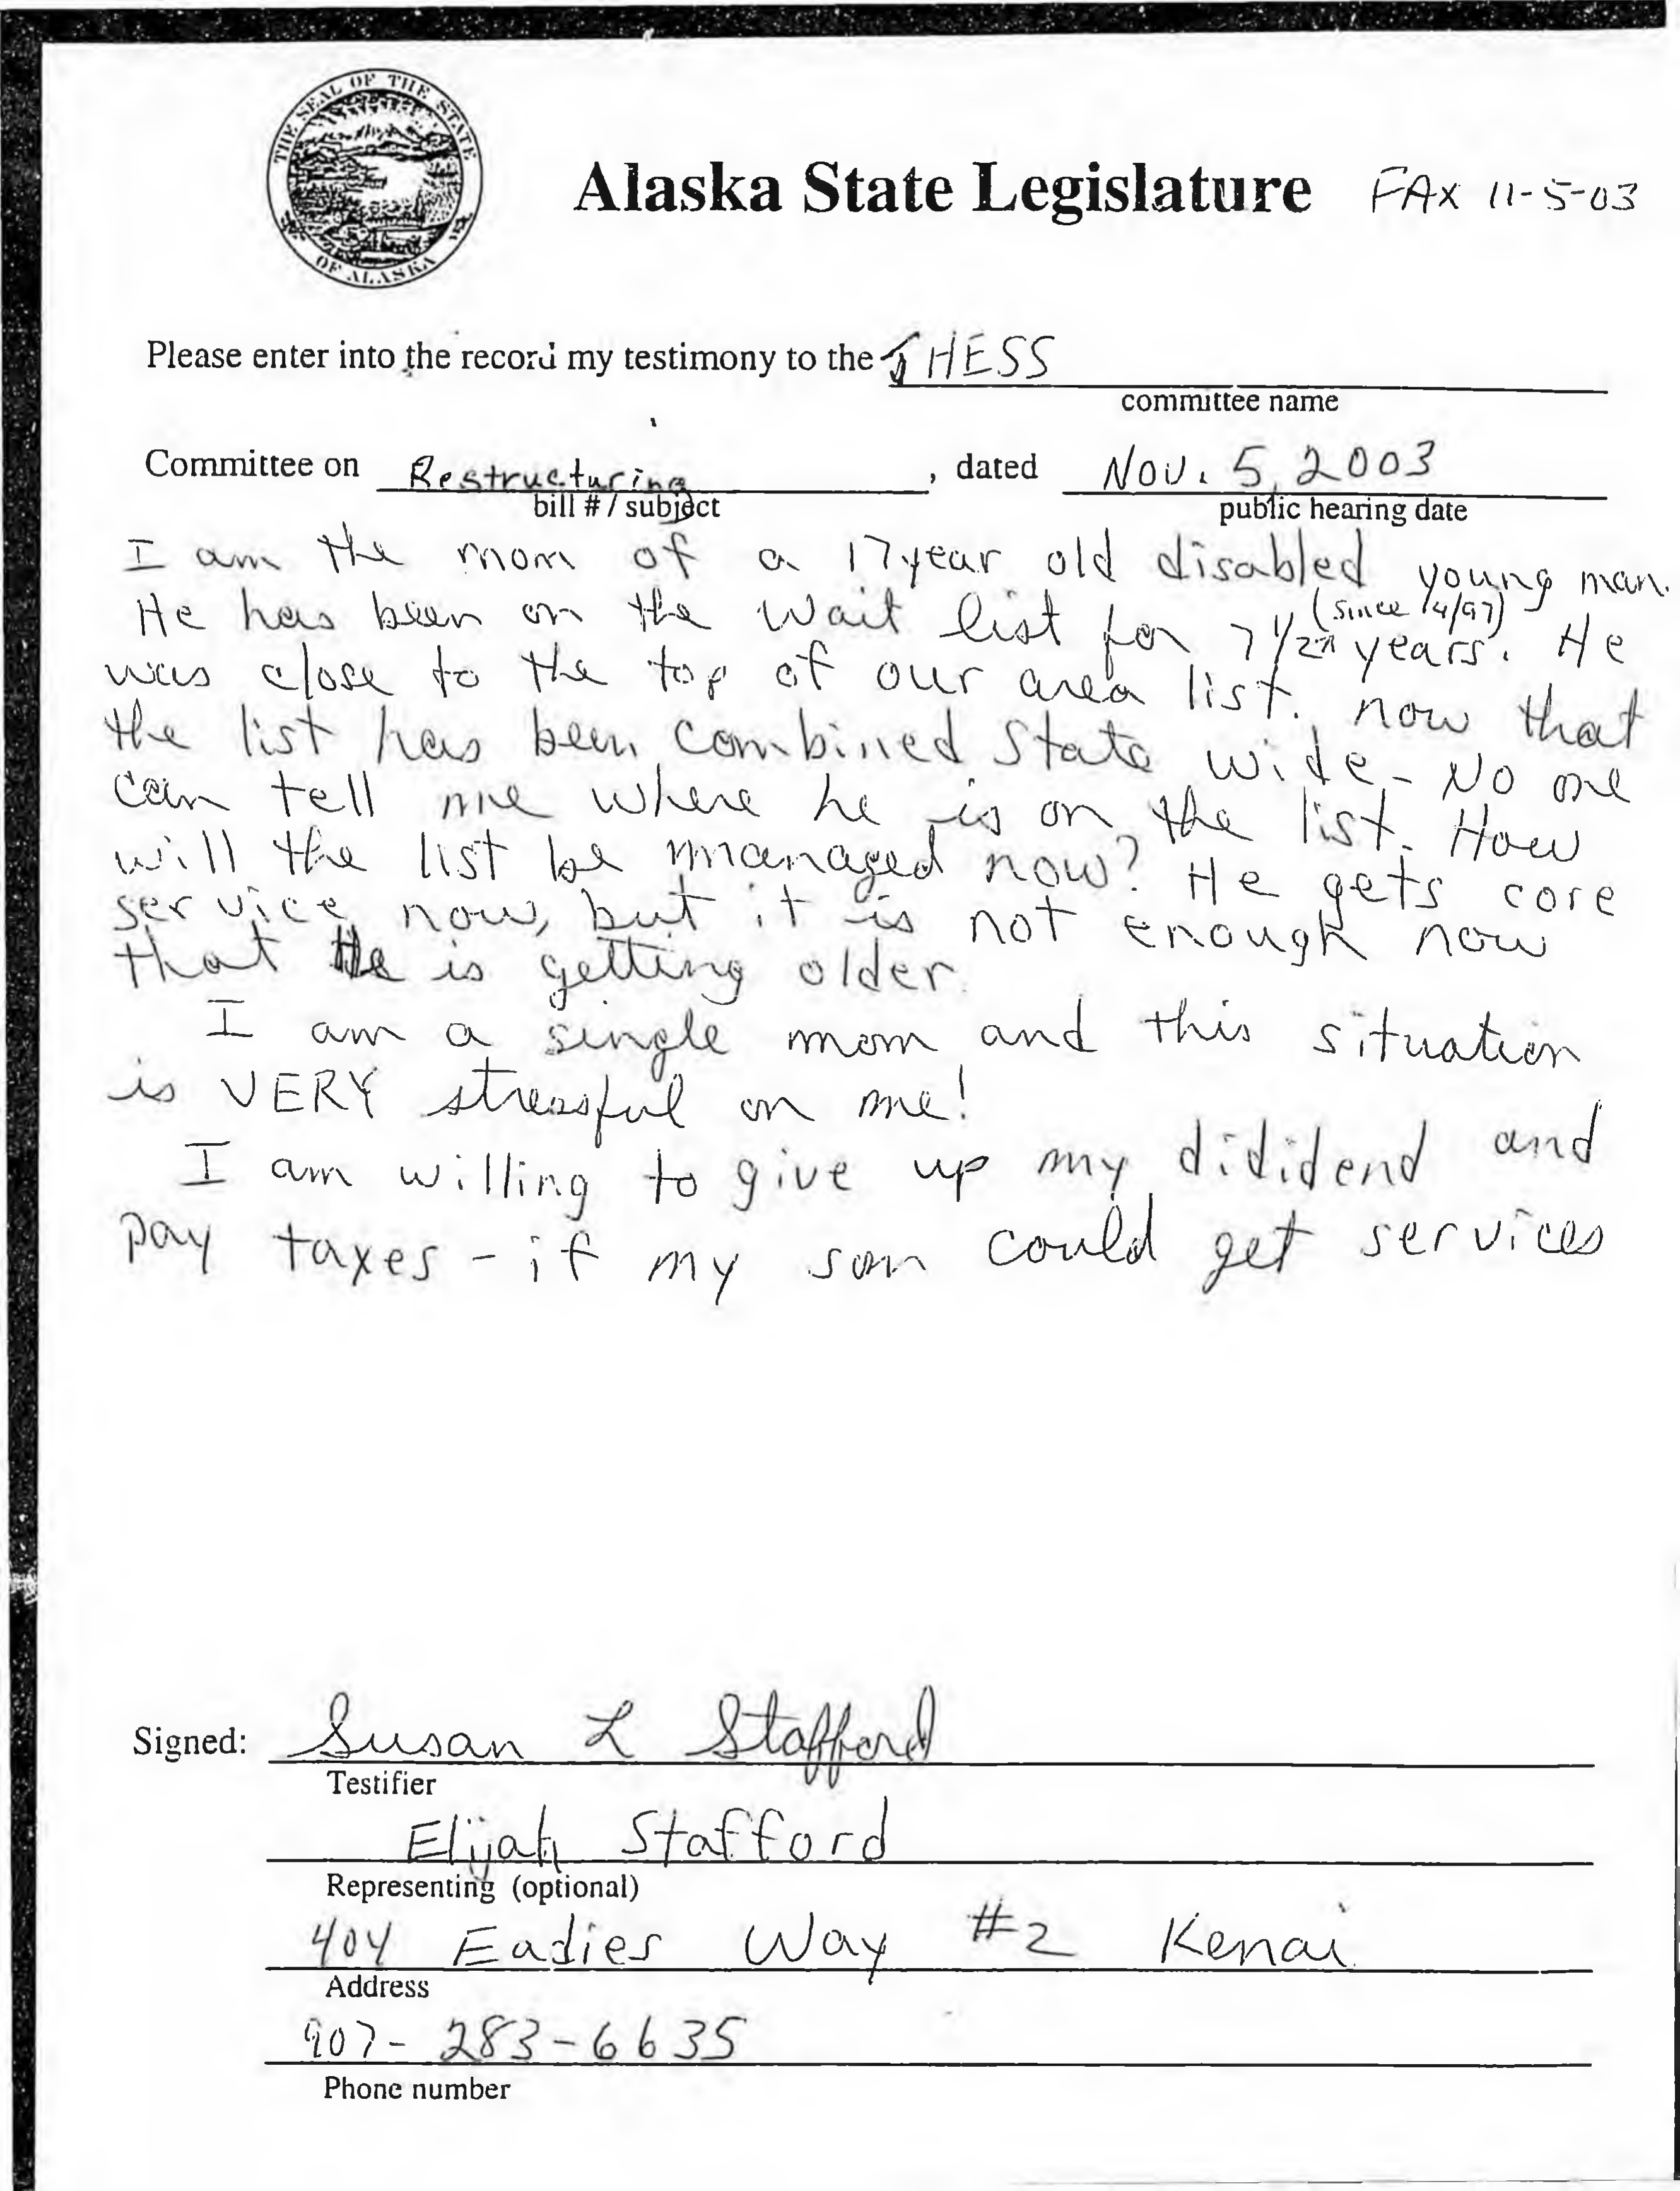 THE SEAL OF THE STATE
OF ALASKA
Alaska State Legislature FAX 11-5-03
Please enter into the record my testimony to the HESS
committee name
Committee on Restructuring, dated Nov. 5, 2003
bill # / subject public hearing date
I am the mom of a 17 year old disabled young man.
(since 4/97)
He has been on the wait list for 7 1/2 years. He
was close to the top of our area list. now that
the list has been combined State wide - No one
can tell me where he is on the list. How
will the list be managed now? He gets core
service now, but it is not enough now
that He is getting older.
I am a single mom and this situation
is VERY stressful on me!
I am willing to give up my dididend and
pay taxes - if my son could get services
Signed: Susan L Stafford
Testifier
Elijah Stafford
Representing (optional)
404 Eadies Way #2 Kenai
Address
907-283-6635
Phone number